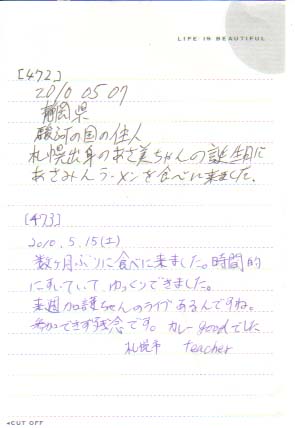 LIFE IS BEAUTIFUL
[472]
2010 05 07
静岡県
駿河の国の住人
札幌出身のあさ美ちゃんの誕生日に
あさみんラーメンを食べに来ました.
[473]
2010.5.15(土)
数ヶ月ぶりに食べに来ました。時間的
にすいていて、ゆっくりできました。
来週加護ちゃんのライブあるんですね。
参加できず残念です。カレーgoodでした
札幌市 teacher
◂CUT OFF